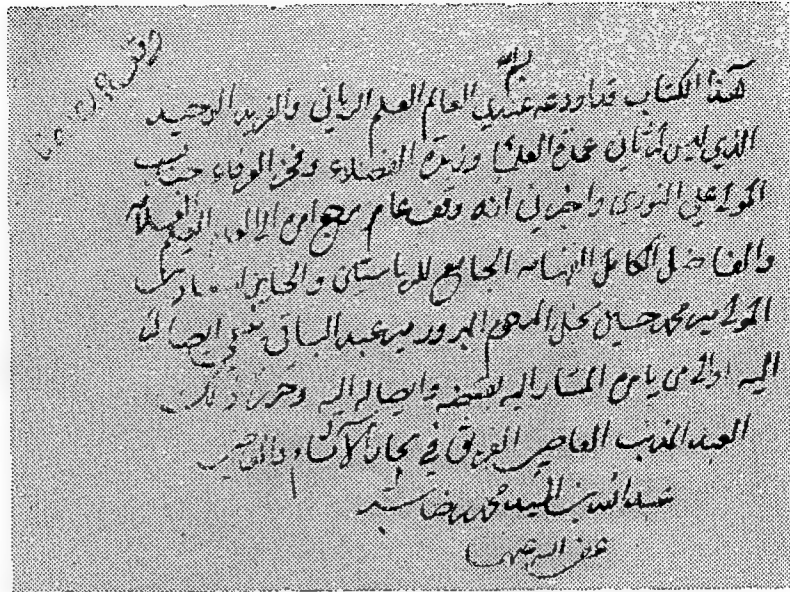 بسم الله
هذا الكتاب قد اودعه عندي العالم العلم الرباني والفريد الوحيد
الذي ليس له ثاني عمدة العلماء وزبدة الفضلاء وفخر العرفاء جناب
المولى علي النوري واخبرني انه وقف عام مرجع امره الى العالم العليم العلامه
والفاضل الكامل الفهامه الجامع للرياستين والحايز
المولى مير محمد حسين نجل المرحوم المبرور مير عبد الباقي ايصاله
اليه او الى من يامره المشار اليه بقبضه وايصاله اليه وحرر ذلك
العبد المذنب العاصي الغريق في بحار الآثام والمعاصي
عبد الله بن السيد محمد رضا شبر
عفى الله عنهما